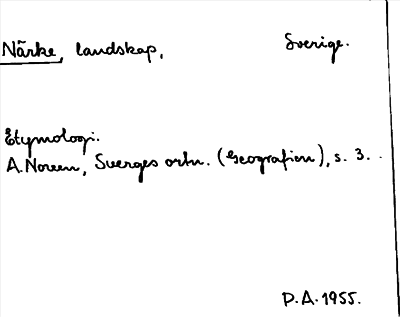 Närke, landskap, Sverige.
Etymologi.
A. Noreen, Sverges ortn. (Geografien), s. 3.
P.A. 1955.